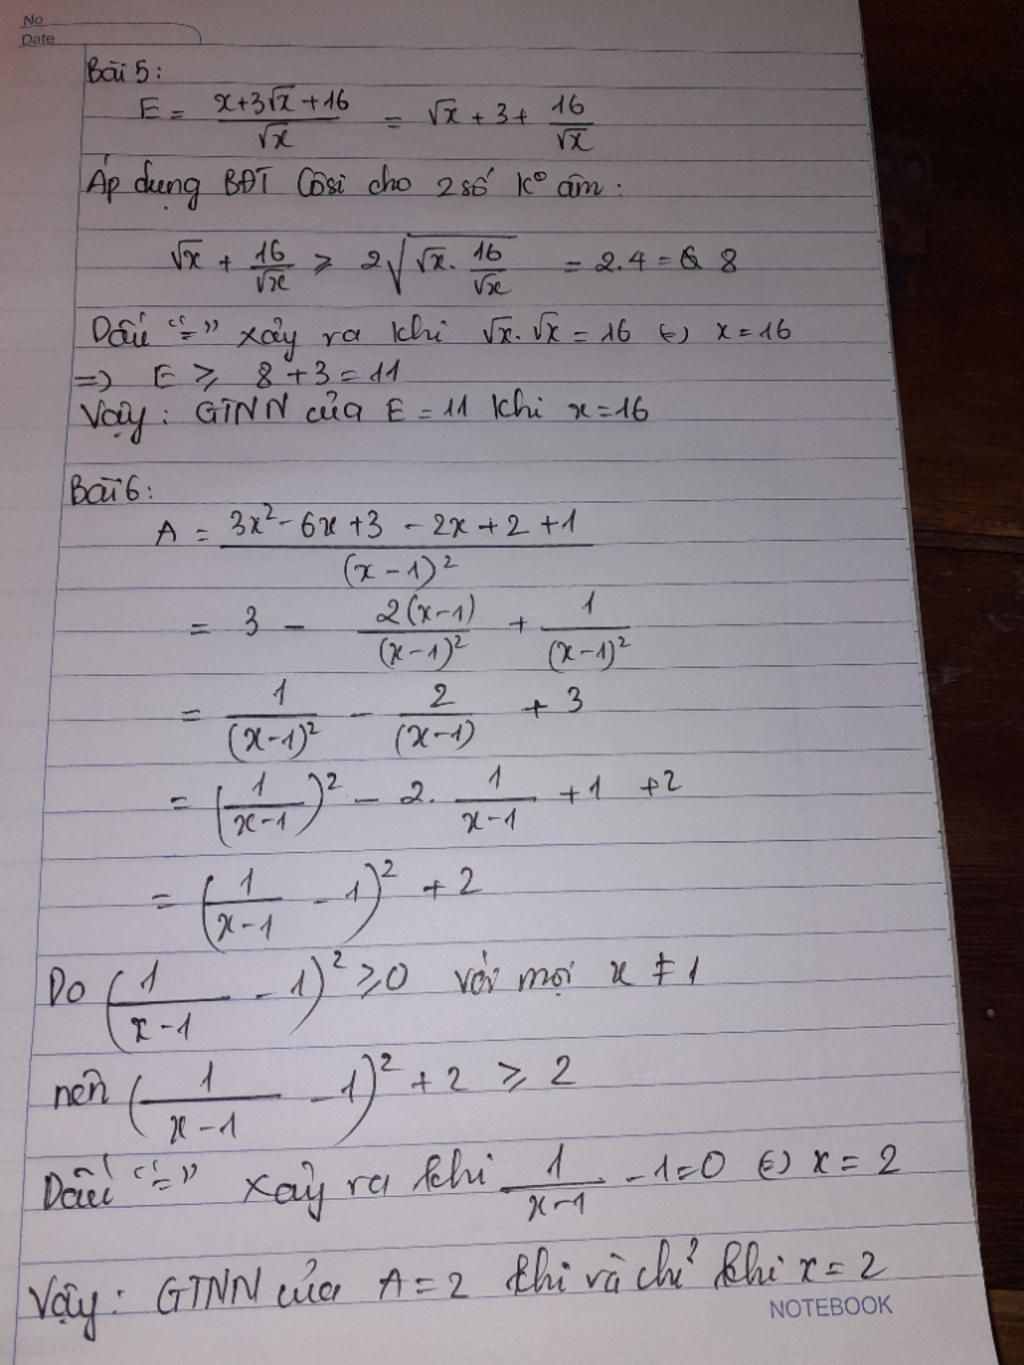 No
Date
Bài 5:
E = (x+3√x+16)/√x = √x + 3 + 16/√x
Áp dụng BĐT Côsi cho 2 số k° âm:
√x + 16/√x ≥ 2√(√x. 16/√x) = 2.4 = 8
Dấu "=" xảy ra khi √x.√x = 16 (=) x = 16
=) E ≥ 8 + 3 = 11
Vậy: GTNN của E = 11 khi x = 16
Bài 6:
A = (3x² - 6x + 3 - 2x + 2 + 1)/(x-1)²
= 3 - 2(x-1)/(x-1)² + 1/(x-1)²
= 1/(x-1)² - 2/(x-1) + 3
= (1/(x-1))² - 2. 1/(x-1) + 1 + 2
= (1/(x-1) - 1)² + 2
Do (1/(x-1) - 1)² ≥ 0 với mọi x ≠ 1
nên (1/(x-1) - 1)² + 2 ≥ 2
Dấu "=" xảy ra khi 1/(x-1) - 1 = 0 (=) x = 2
Vậy: GTNN của A = 2 khi và chỉ khi x = 2
NOTEBOOK